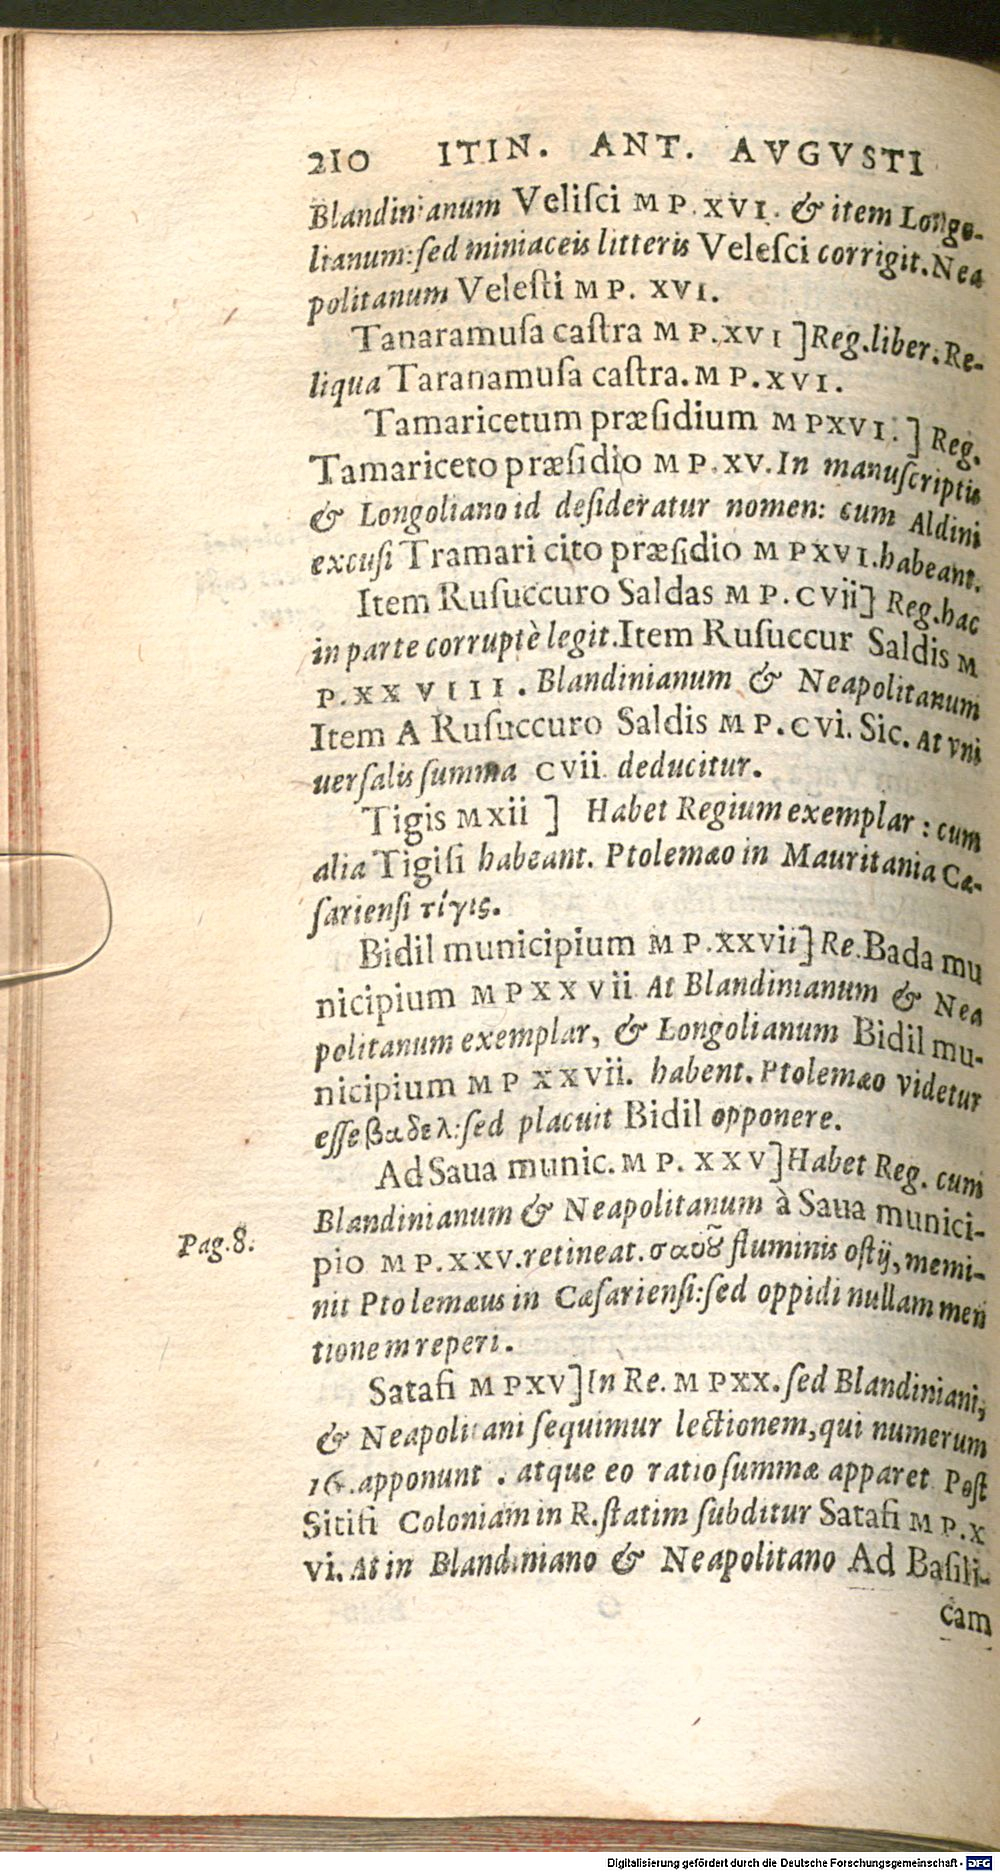 210 ITIN. ANT. AVGVSTI
Blandinianum Veliſci M P. XVI. & item Longo-
lianum: ſed miniaceis litteris Veleſci corrigit. Nea
politanum Veleſti M P. XVI.
Tanaramuſa caſtra M P. XVI ] Reg. liber. Re-
liqua Taranamuſa caſtra. M P. XVI.
Tamaricetum præſidium M PXVI. ] Reg.
Tamariceto præſidio M P. XV. In manuſcriptis
& Longoliano id deſideratur nomen: cum Aldini
excuſi Tramari cito præſidio M PXVI. habeant.
Item Ruſuccuro Saldas M P. CVii] Reg. hac
in parte corruptè legit. Item Ruſuccur Saldis M
P. XX VIII. Blandinianum & Neapolitanum
Item A Ruſuccuro Saldis M P. CVi. Sic. At vni
uerſalis ſumma CVii. deducitur.
Tigis MXii ] Habet Regium exemplar: cum
alia Tigiſi habeant. Ptolemæo in Mauritania Cæ-
ſarienſi τίγις.
Bidil municipium M P. XXVii] Re. Bada mu
nicipium M P XX Vii At Blandinianum & Nea
politanum exemplar, & Longolianum Bidil mu-
nicipium M P XXVii. habent. Ptolemæo videtur
eſſe βαδελ: ſed placuit Bidil opponere.
Ad Saua munic. M P. XXV] Habet Reg. cum
Blandinianum & Neapolitanum à Saua munici-
Pag. 8.
pio M P. XXV. retineat. σαȣ̃ fluminis oſtij, memi-
nit Ptolemæus in Cæſarienſi: ſed oppidi nullam men
tionem reperi.
Satafi M PXV] In Re. M PXX. ſed Blandiniani,
& Neapolitani ſequimur lectionem, qui numerum
16. apponunt. atque eo ratio ſummæ apparet Poſt
Sitifi Coloniam in R. ſtatim ſubditur Satafi M P. X
vi. At in Blandiniano & Neapolitano Ad Baſili-
cam
Digitalisierung gefördert durch die Deutsche Forschungsgemeinschaft - DFG